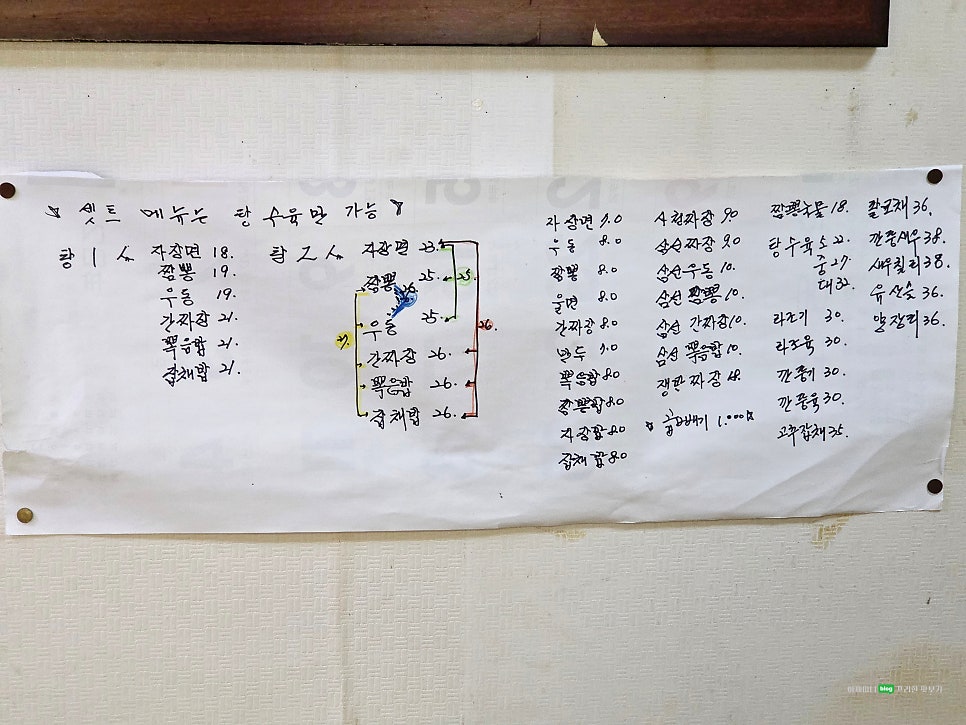 셋트 메뉴는 탕수육만 가능
탕 1人 자장면 18.
짬뽕 19.
우동 19.
간짜장 21.
볶음밥 21.
잡채밥 21.
탕 2人 자장면 23.
짬뽕 25.
26.
우동 25.
간짜장 26.
볶음밥 26.
잡채밥 26.
25.
26.
27.
자장면 7.0
우동 8.0
짬뽕 8.0
울면 8.0
간짜장 8.0
만두 7.0
볶음밥 8.0
짬뽕밥 8.0
자장밥 8.0
잡채밥 8.0
사천짜장 9.0
삼선짜장 9.0
삼선우동 10.
삼선짬뽕 10.
삼선간짜장 10.
삼선볶음밥 10.
쟁반짜장 18.
곱빼기 1.000
짬뽕국물 18.
탕수육 소 22.
중 27.
대 32.
라조기 30.
라조육 30.
깐풍기 30.
깐풍육 30.
고추잡채 35.
팔보채 36.
깐풍새우 38.
새우칠리 38.
유산슬 36.
양장피 36.
blog